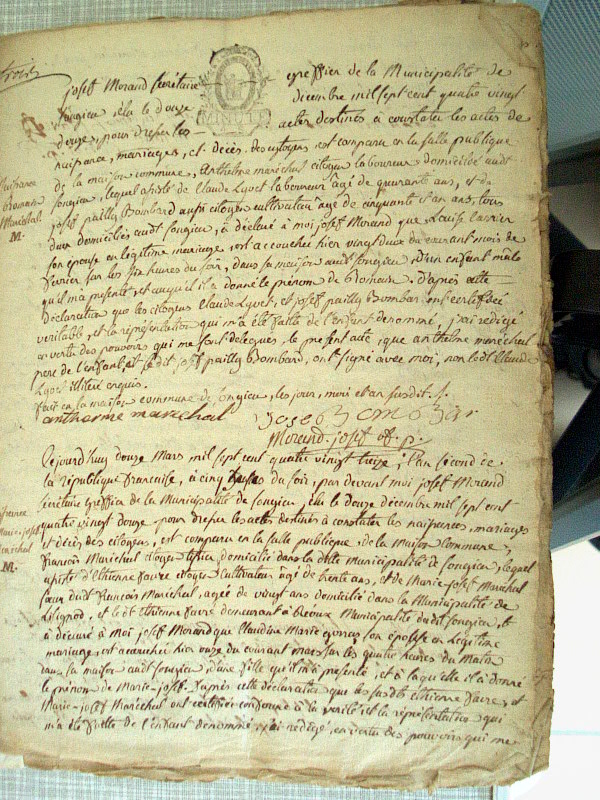 trois
josef Morand secrétaire greffier de la Municipalité de
songieu élu le douze decembre mil sept cent quatre vingt
MINUTE
douze, pour dresser les actes destinés à constater les actes de
naissance, mariages, et décès des citoyens est comparu en la salle publique
de la maison commune, Anthelme maréchal citoyen laboureur domicilié audt
songieu, lequel assisté de Claude Lyvet laboureur âgé de quarante ans, et de
josef pailly Bombard aussi citoyen cultivateur âge de cinquante et un ans, tous
deux domiciliés audt songieu, à déclaré à moi josef Morand que Louise
son épouse en légitime mariage, est accouchée hier vingt deux du courant mois de
fevrier sur les six heures du soir, dans sa maison audt songieu, d'un enfant mâle
qu'il m'a présenté, et auquel il a donné le prénom de Romain. d'après cette
déclaration que les citoyens Claude Lyvet, et josef pailly Bombar, ont certifiée
veritable, et la réprésentation qui m'a été faite de l'enfant denommé, j'ai redigé
en vertu des pouvoirs qui me sont delegués, le present acte, que anthelme maréchal
pere de l'enfant, et ledit josef pailly Bombard, ont signé avec moi, non ledt Claude
Lyvet illiteré enquis.
fait en la maison commune de songieu, les jour, mois et an susdit.
naissance
Romain
Maréchal
M.
antherme marechal
Morand josef off. p.
Cejourd'huy douze Mars mil sept cent quatre vingt treize, l'an second de
la république francaise, à cinq heures du soir, par devant moi josef Morand
secrétaire greffier de la Municipalité de songieu élu le douze décembre mil sept cent
quatre vingt douze, pour dresser les actes destinés à constater les naissances, mariages
et décès des citoyens, est comparu en la salle publique, de la Maison Commune,
françois Maréchal citoyen domicilié dans la dite Municipalité de songieu, lequel
assisté d'Etienne favre citoyen cultivateur âgé de trente ans, et de Marie-josef Maréchal
sœur dudt françois Maréchal, agée de vingt ans domicilié dans la Municipalité de
et ledt Etienne favre demeurant à Municipalité dudit songieu, et
à déclaré à Moi josef Morand que Claudine Marie son épouse en légitime
mariage, est accouchée hier onze du courant mars sur les quatre heures du Matin
dans sa maison audt songieu, d'une fille qu'il m'a présenté, et à laquelle il a donné
le prénom de Marie-josef. d'après cette déclaration que les susdits Etienne favre, et
Marie-josef Maréchal ont certifiée conforme à la verité, et la répresentation qui
m'a été faite de l'enfant denommé, j'ai redigé, en vertu des pouvoirs qui me
naissance
Marie-josef
Maréchal
M.